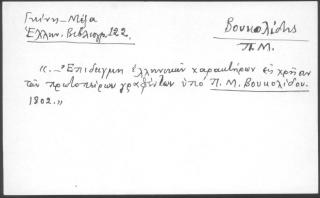 Γκίνη-Μέξα
Ἑλλην. Βιβλιογρ. 122.
Βουκολίδης
Π.Μ.
«.—Ἐπίδειγμη ἑλληνικῶν χαρακτήρων εἰς χρῆσιν
τῶν πρωτοπείρων γραφέντων ὑπὸ Π. Μ. Βουκολίδου.
1802.»